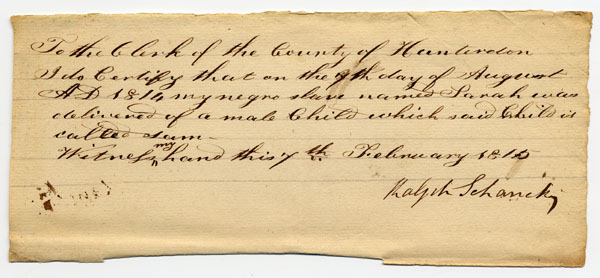 To the Clerk of the County of Hunterdon
I do Certify that on the 9th day of August
AD 1814 my negro slave named Sarah was
delivered of a male Child which said Child is
called Sam-
Witness my hand this 7th February 1815
Ralph Schanck